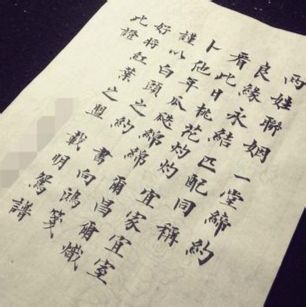 兩姓聯姻一堂締約
良緣永結匹配同稱
看此日桃花灼灼宜家宜室
卜他年瓜瓞綿綿爾昌爾熾
謹以白頭之約書向鴻箋
好將紅葉之盟載明鴛譜
此證